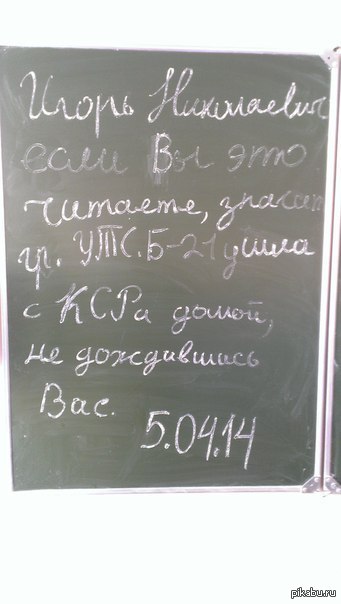 Игорь Николаевич
если Вы это
читаете, значит
гр. УТС.Б-21 ушла
с КСРа домой,
не дождавшись
Вас.
5.04.14
pikabu.ru